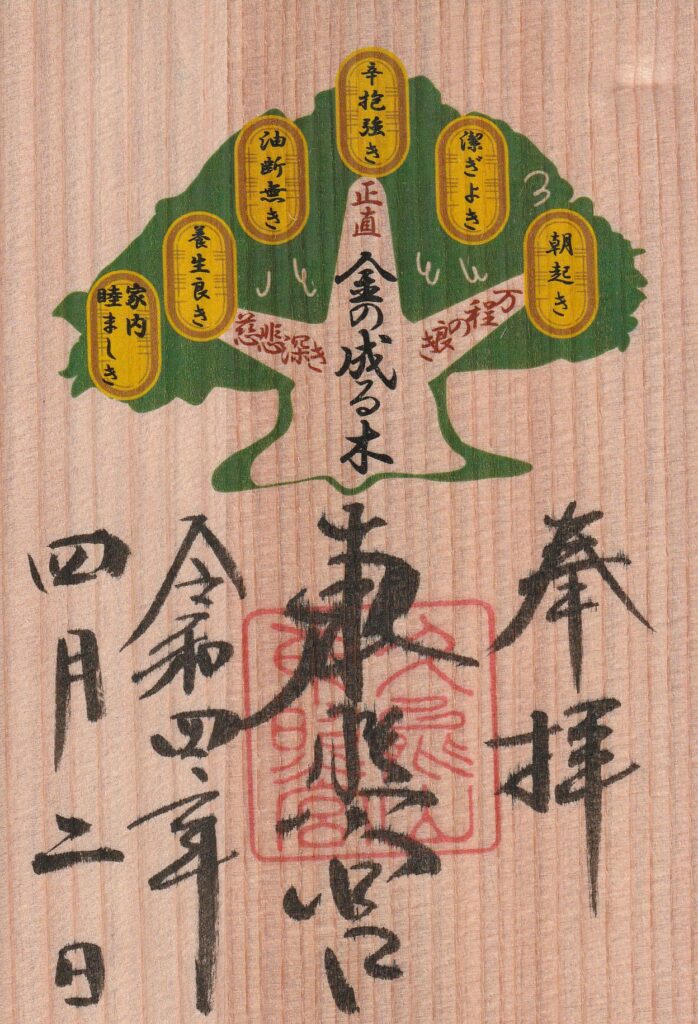 朝起き
潔ぎよき
辛抱強き
油断無き
養生良き
家内
睦ましき
万程の
正直
慈悲深き
金の成る木
奉拝
東照宮
令和四年
四月二日
久能山
東照宮